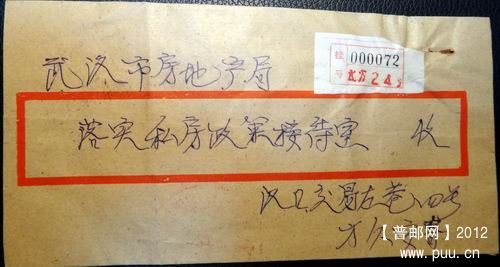 挂 000072
号 武万 24
武汉市房地产局
落实私房政策接待室 收
汉口交易左巷四号
【普邮网】2012
www.puu.cn